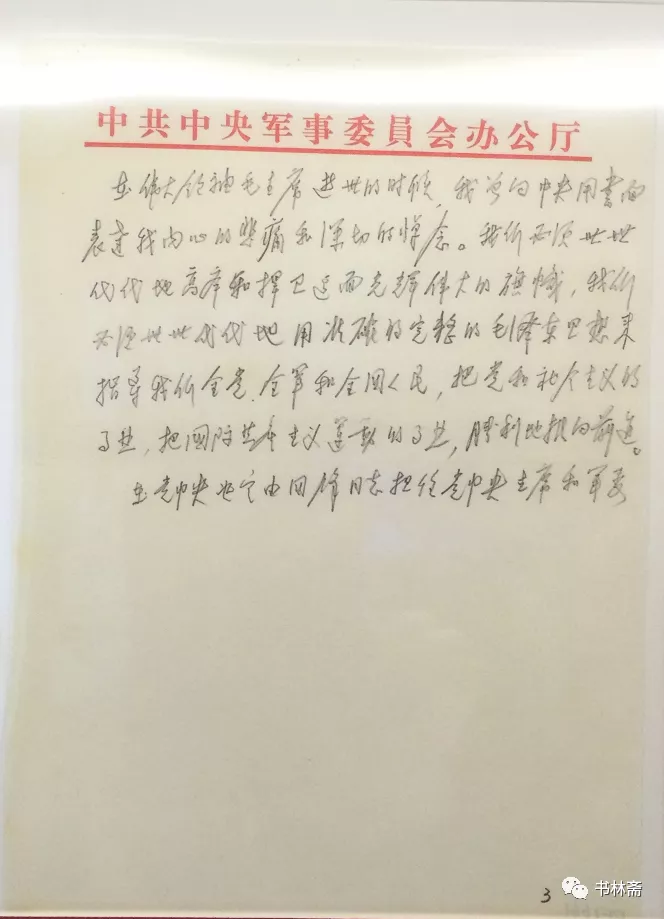 中共中央军事委員会办公厅
在伟大领袖毛主席逝世的时候，我曾向中央用書面
表達我内心的悲痛和深切的悼念。我们必须世世
代代地高举和捍卫这面光辉伟大的旗幟，我们
必须世世代代地用准确的完整的毛泽东思想来
指导我们全党、全軍和全国人民，把党和社会主义的
事业，把國际共產主义運動的事业，勝利地推向前進。
在党中央决定由国锋同志担任党中央主席和军委
3
书林斋